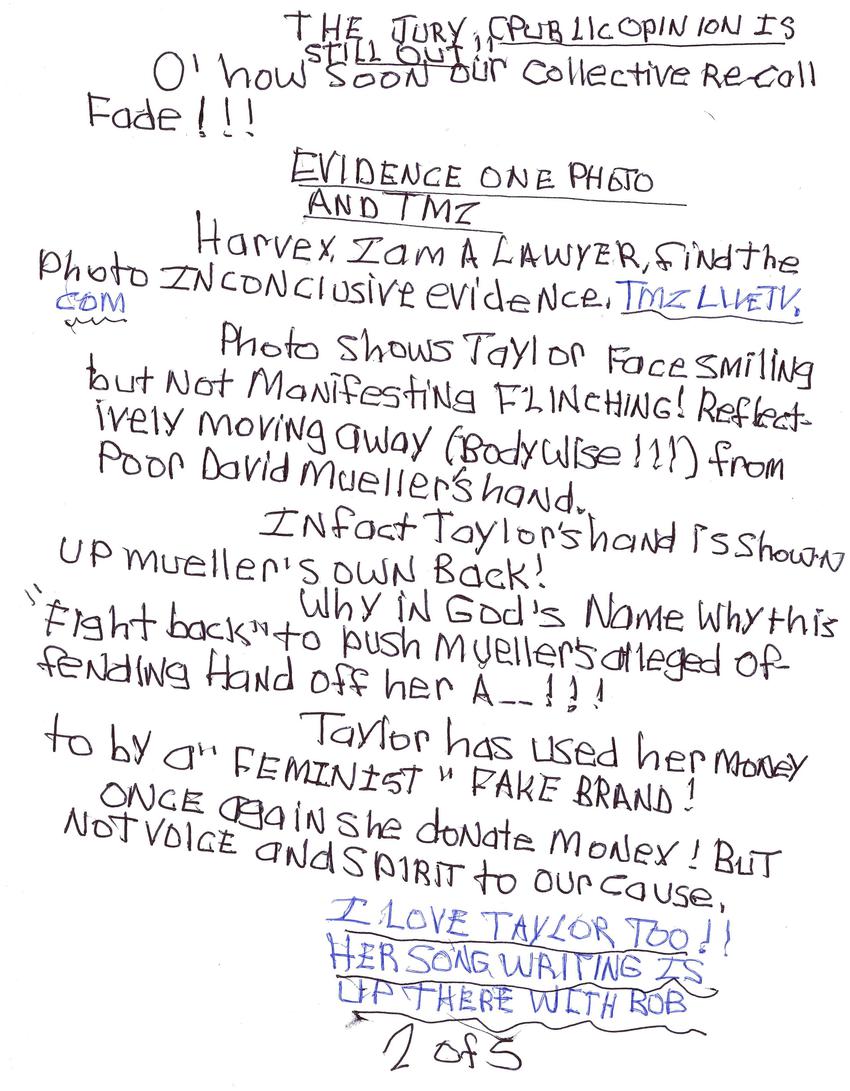 THE JURY, (PUBLIC OPINION IS
STILL OUT!!
O' how SOON our Collective Re-call
Fade!!!
EVIDENCE ONE PHOTO
AND TMZ
Harvey, I am A LAWYER, find the
Photo INCONClusive evidence. TMZ LIVETV.
COM
Photo shows Taylor Face smiling
but Not Manifesting FLINCHING! Reflect-
ively moving away (Bodywise!!!) from
Poor David Mueller's hand.
IN fact Taylor's hand is shown
UP mueller's OWN Back!
Why in God's Name Why this
"Fight back" to push Mueller's alleged of-
fending Hand off her A__!!!
Taylor has used her money
to by a "FEMINIST" FAKE BRAND!
ONCE again she donate money! BUT
NOT VOICE and SPIRIT to our cause.
I LOVE TAYLOR TOO!!
HER SONG WRITING IS
UP THERE WITH BOB
2 of 5